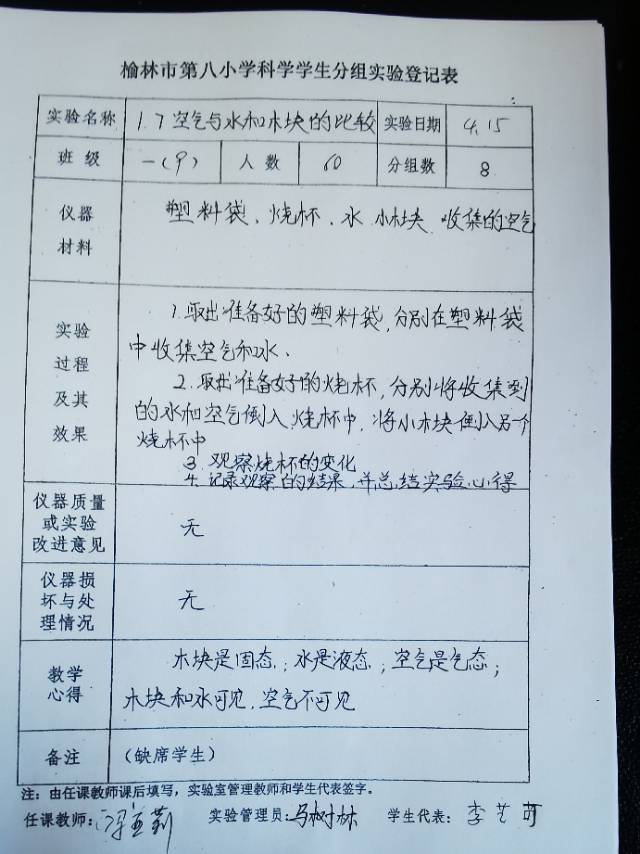 榆林市第八小学科学学生分组实验登记表
实验名称 1.7空气与水和木块的比较 实验日期 4.15
班级 一(9) 人数 60 分组数 8
仪器
材料
塑料袋、烧杯、水 小木块 收集的空气
实验
过程
及其
效果
1.取出准备好的塑料袋,分别在塑料袋
中收集空气和水、
2.取出准备好的烧杯,分别将收集到
的水和空气倒入烧杯中,将小木块倒入另一个
烧杯中
3.观察烧杯的变化
4.记录观察的结果,并总结实验心得
仪器质量
或实验
改进意见
无
仪器损
坏与处
理情况
无
教学
心得
木块是固态;水是液态;空气是气态;
木块和水可见,空气不可见
备注 (缺席学生)
注:由任课教师课后填写,实验室管理教师和学生代表签字。
任课教师: 实验管理员:马树林 学生代表:李艺可